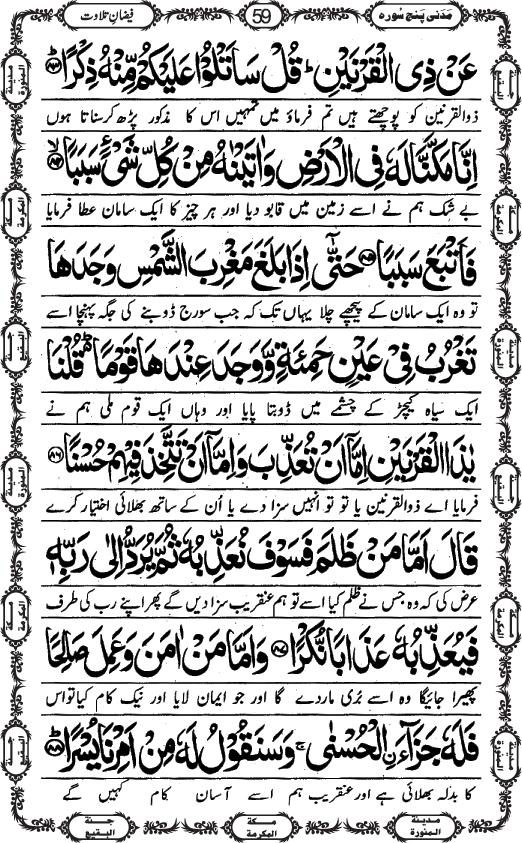 مَدَنی پَنج سُورہ
59
فیضانِ تلاوت
عَنْ ذِی الْقَرْنَیْنِ ؕ قُلْ سَاَتْلُوْا عَلَیْكُمْ مِّنْهُ ذِكْرًا ؕ﴿۸۳﴾
ذوالقرنین کو پوچھتے ہیں تم فرماؤ میں تمہیں اس کا مذکور پڑھ کر سناتا ہوں
اِنَّا مَكَّنَّا لَهٗ فِی الْاَرْضِ وَاٰتَیْنٰهُ مِنْ كُلِّ شَیْءٍ سَبَبًا ﴿ۙ۸۴﴾
بے شک ہم نے اسے زمین میں قابو دیا اور ہر چیز کا ایک سامان عطا فرمایا
فَاَتْبَعَ سَبَبًا ﴿۸۵﴾ حَتّٰۤی اِذَا بَلَغَ مَغْرِبَ الشَّمْسِ وَجَدَهَا
تو وہ ایک سامان کے پیچھے چلا یہاں تک کہ جب سورج ڈوبنے کی جگہ پہنچا اسے
تَغْرُبُ فِیْ عَیْنٍ حَمِئَةٍ وَّوَجَدَ عِنْدَهَا قَوْمًا ۬ؕ قُلْنَا
ایک سیاہ کیچڑ کے چشمے میں ڈوبتا پایا اور وہاں ایک قوم ملی ہم نے
یٰذَا الْقَرْنَیْنِ اِمَّاۤ اَنْ تُعَذِّبَ وَاِمَّاۤ اَنْ تَتَّخِذَ فِیْهِمْ حُسْنًا ﴿۸۶﴾
فرمایا اے ذوالقرنین یا تو تو انہیں سزا دے یا اُن کے ساتھ بھلائی اختیار کرے
قَالَ اَمَّا مَنْ ظَلَمَ فَسَوْفَ نُعَذِّبُهٗ ثُمَّ یُرَدُّ اِلٰی رَبِّهٖ
عرض کی کہ وہ جس نے ظلم کیا اسے تو ہم عنقریب سزا دیں گے پھر اپنے رب کی طرف
فَیُعَذِّبُهٗ عَذَابًا نُّكْرًا ﴿۸۷﴾ وَاَمَّا مَنْ اٰمَنَ وَعَمِلَ صَالِحًا
پھیرا جائیگا وہ اسے بُری مار دے گا اور جو ایمان لایا اور نیک کام کیا تو اس
فَلَهٗ جَزَآءَ ۨالْحُسْنٰی ۚ وَسَنَقُوْلُ لَهٗ مِنْ اَمْرِنَا یُسْرًا ﴿ؕ۸۸﴾
کا بدلہ بھلائی ہے اور عنقریب ہم اسے آسان کام کہیں گے
مدینة المنورة
مكة المكرمة
جنة البقيع
مدینة المنورة
مكة المكرمة
جنة البقيع
جنة البقيع
مكة المكرمة
مدینة المنورة
جنة البقيع
مكة المكرمة
مدینة المنورة
جنة البقيع
مكة المكرمة
مدینة المنورة